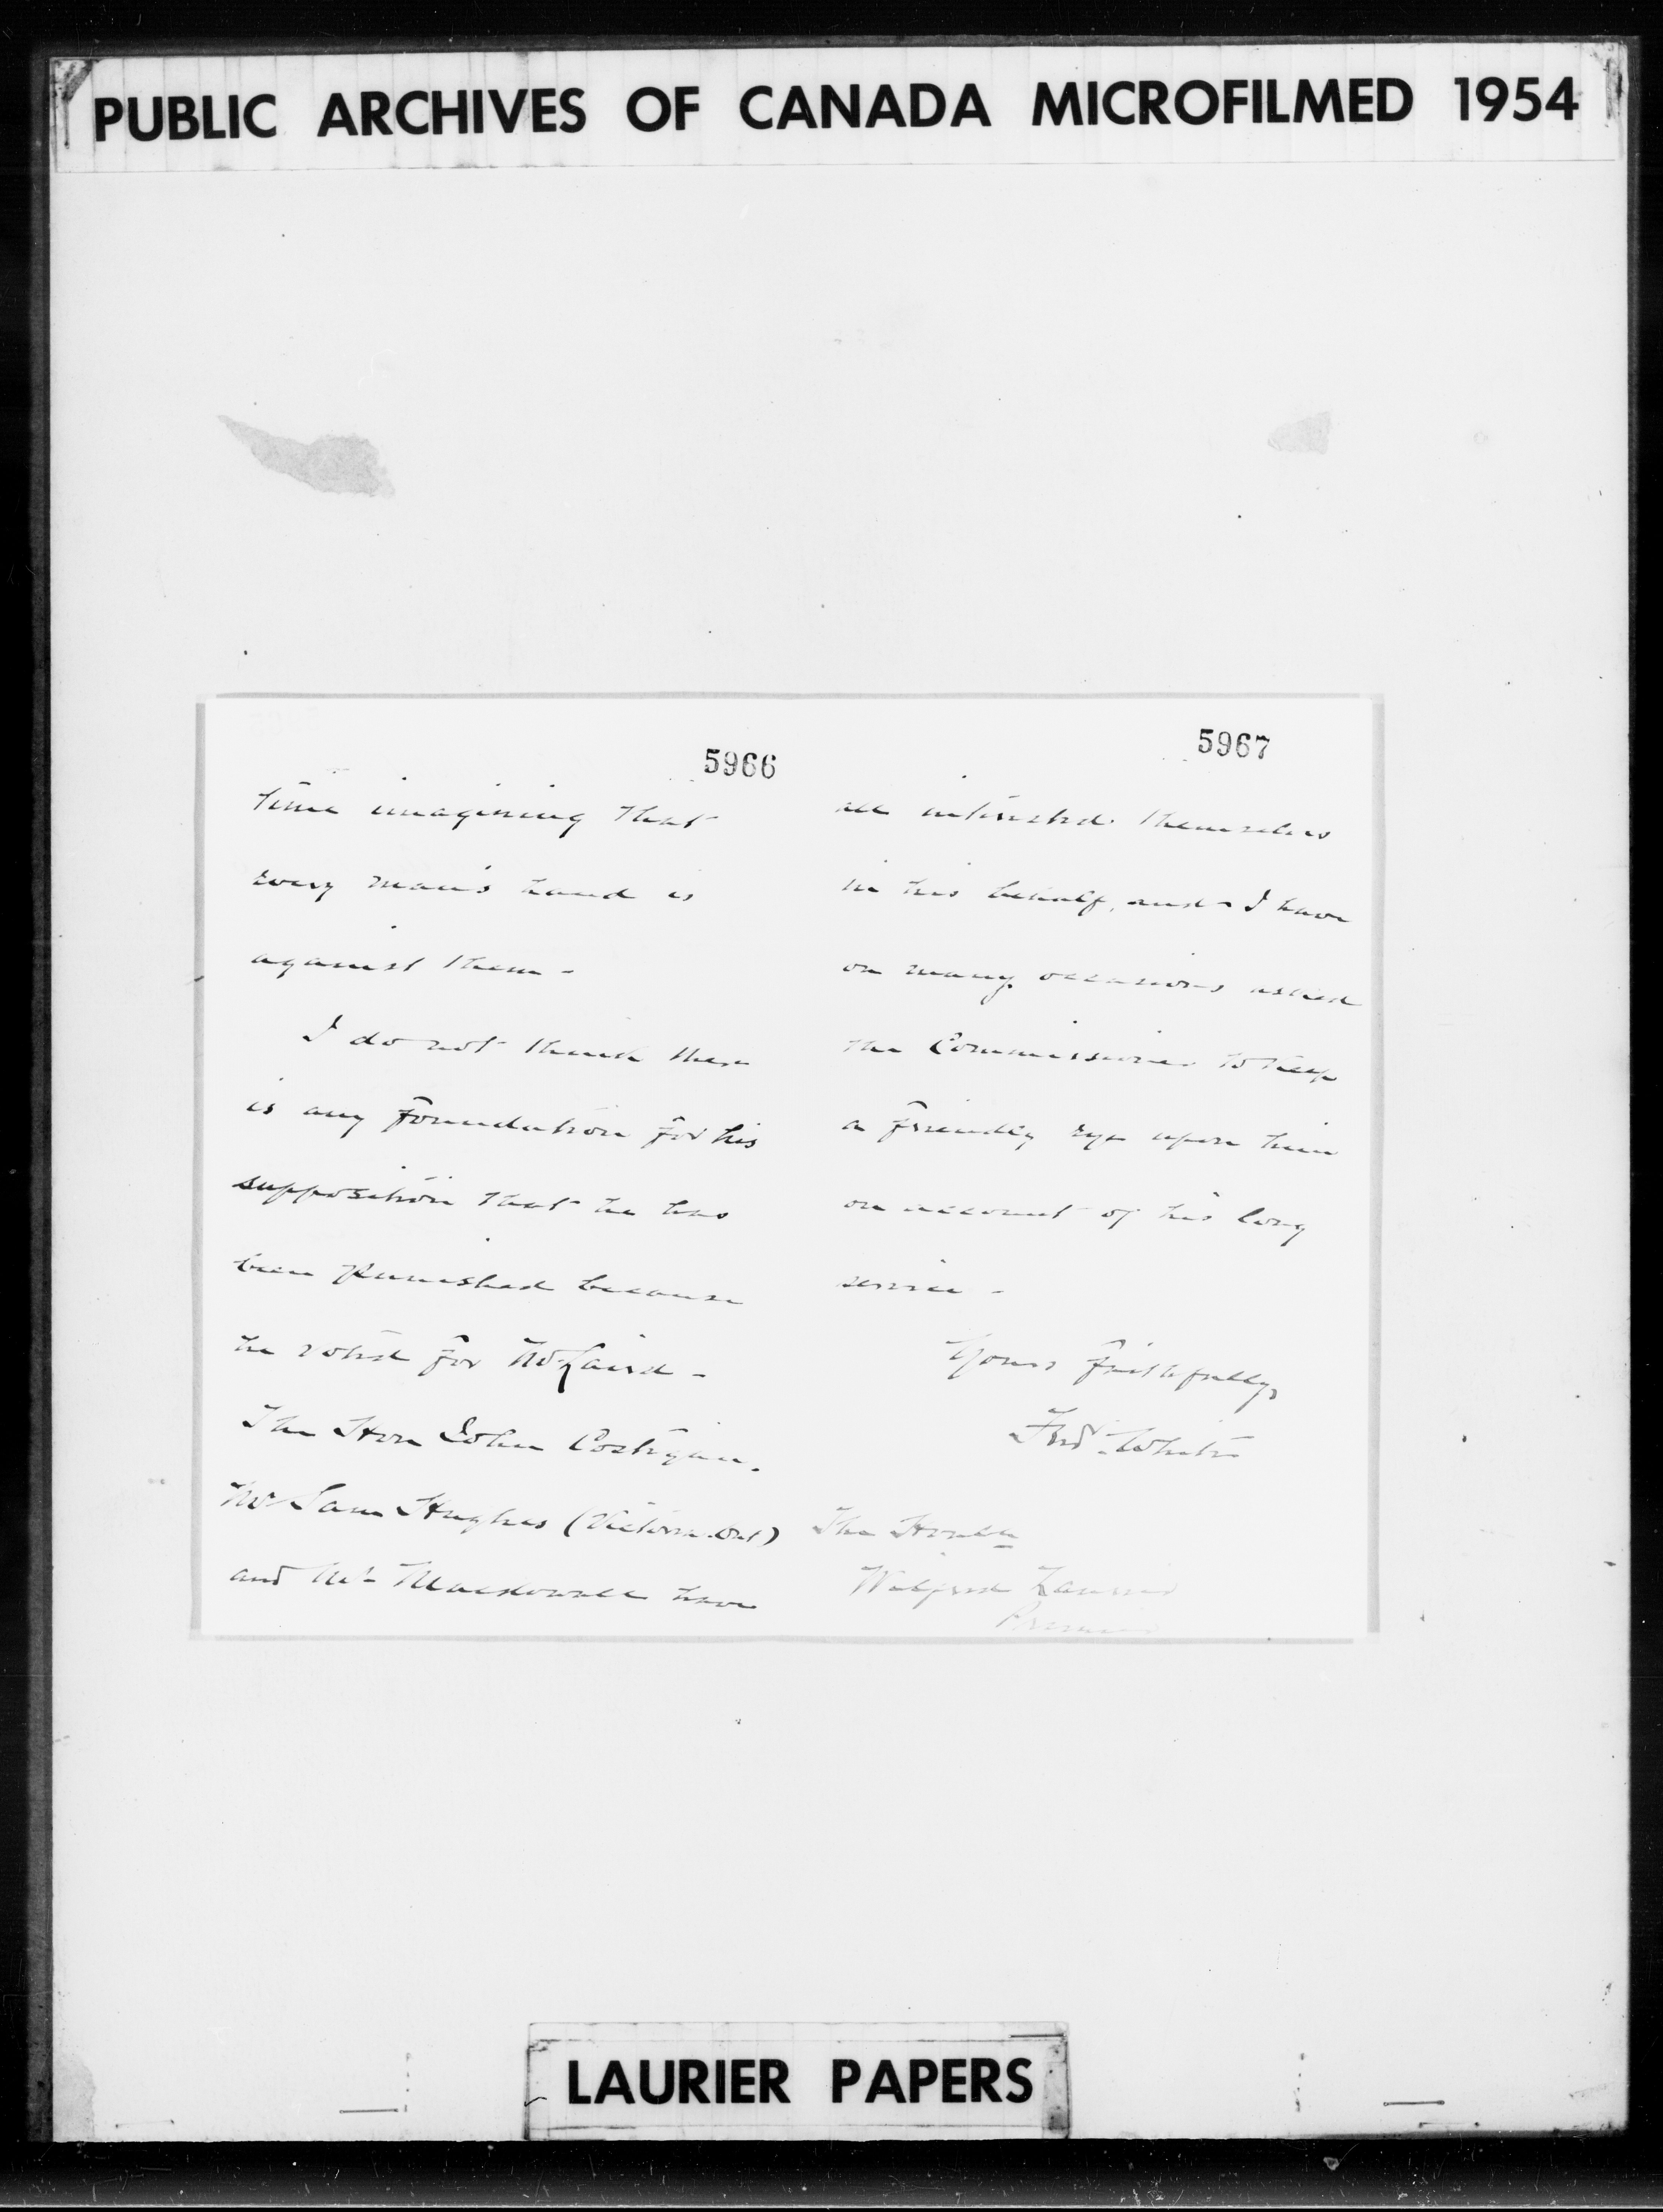 PUBLIC ARCHIVES OF CANADA MICROFILMED 1954
5966
time imagining that
every man's hand is
against them -
I do not think there
is any foundation for his
supposition that he has
been punished because
he voted for Mr Laird -
The Hon John Costigan,
Mr Sam Hughes (Victoria Ont)
and Mr Macdowall have
5967
all interested themselves
in his behalf, and I have
on many occasions asked
the Commissioner to keep
a friendly eye upon him
on account of his long
service -
Yours faithfully,
Fred White
The Honble
Wilfrid Laurier
Premier
LAURIER PAPERS